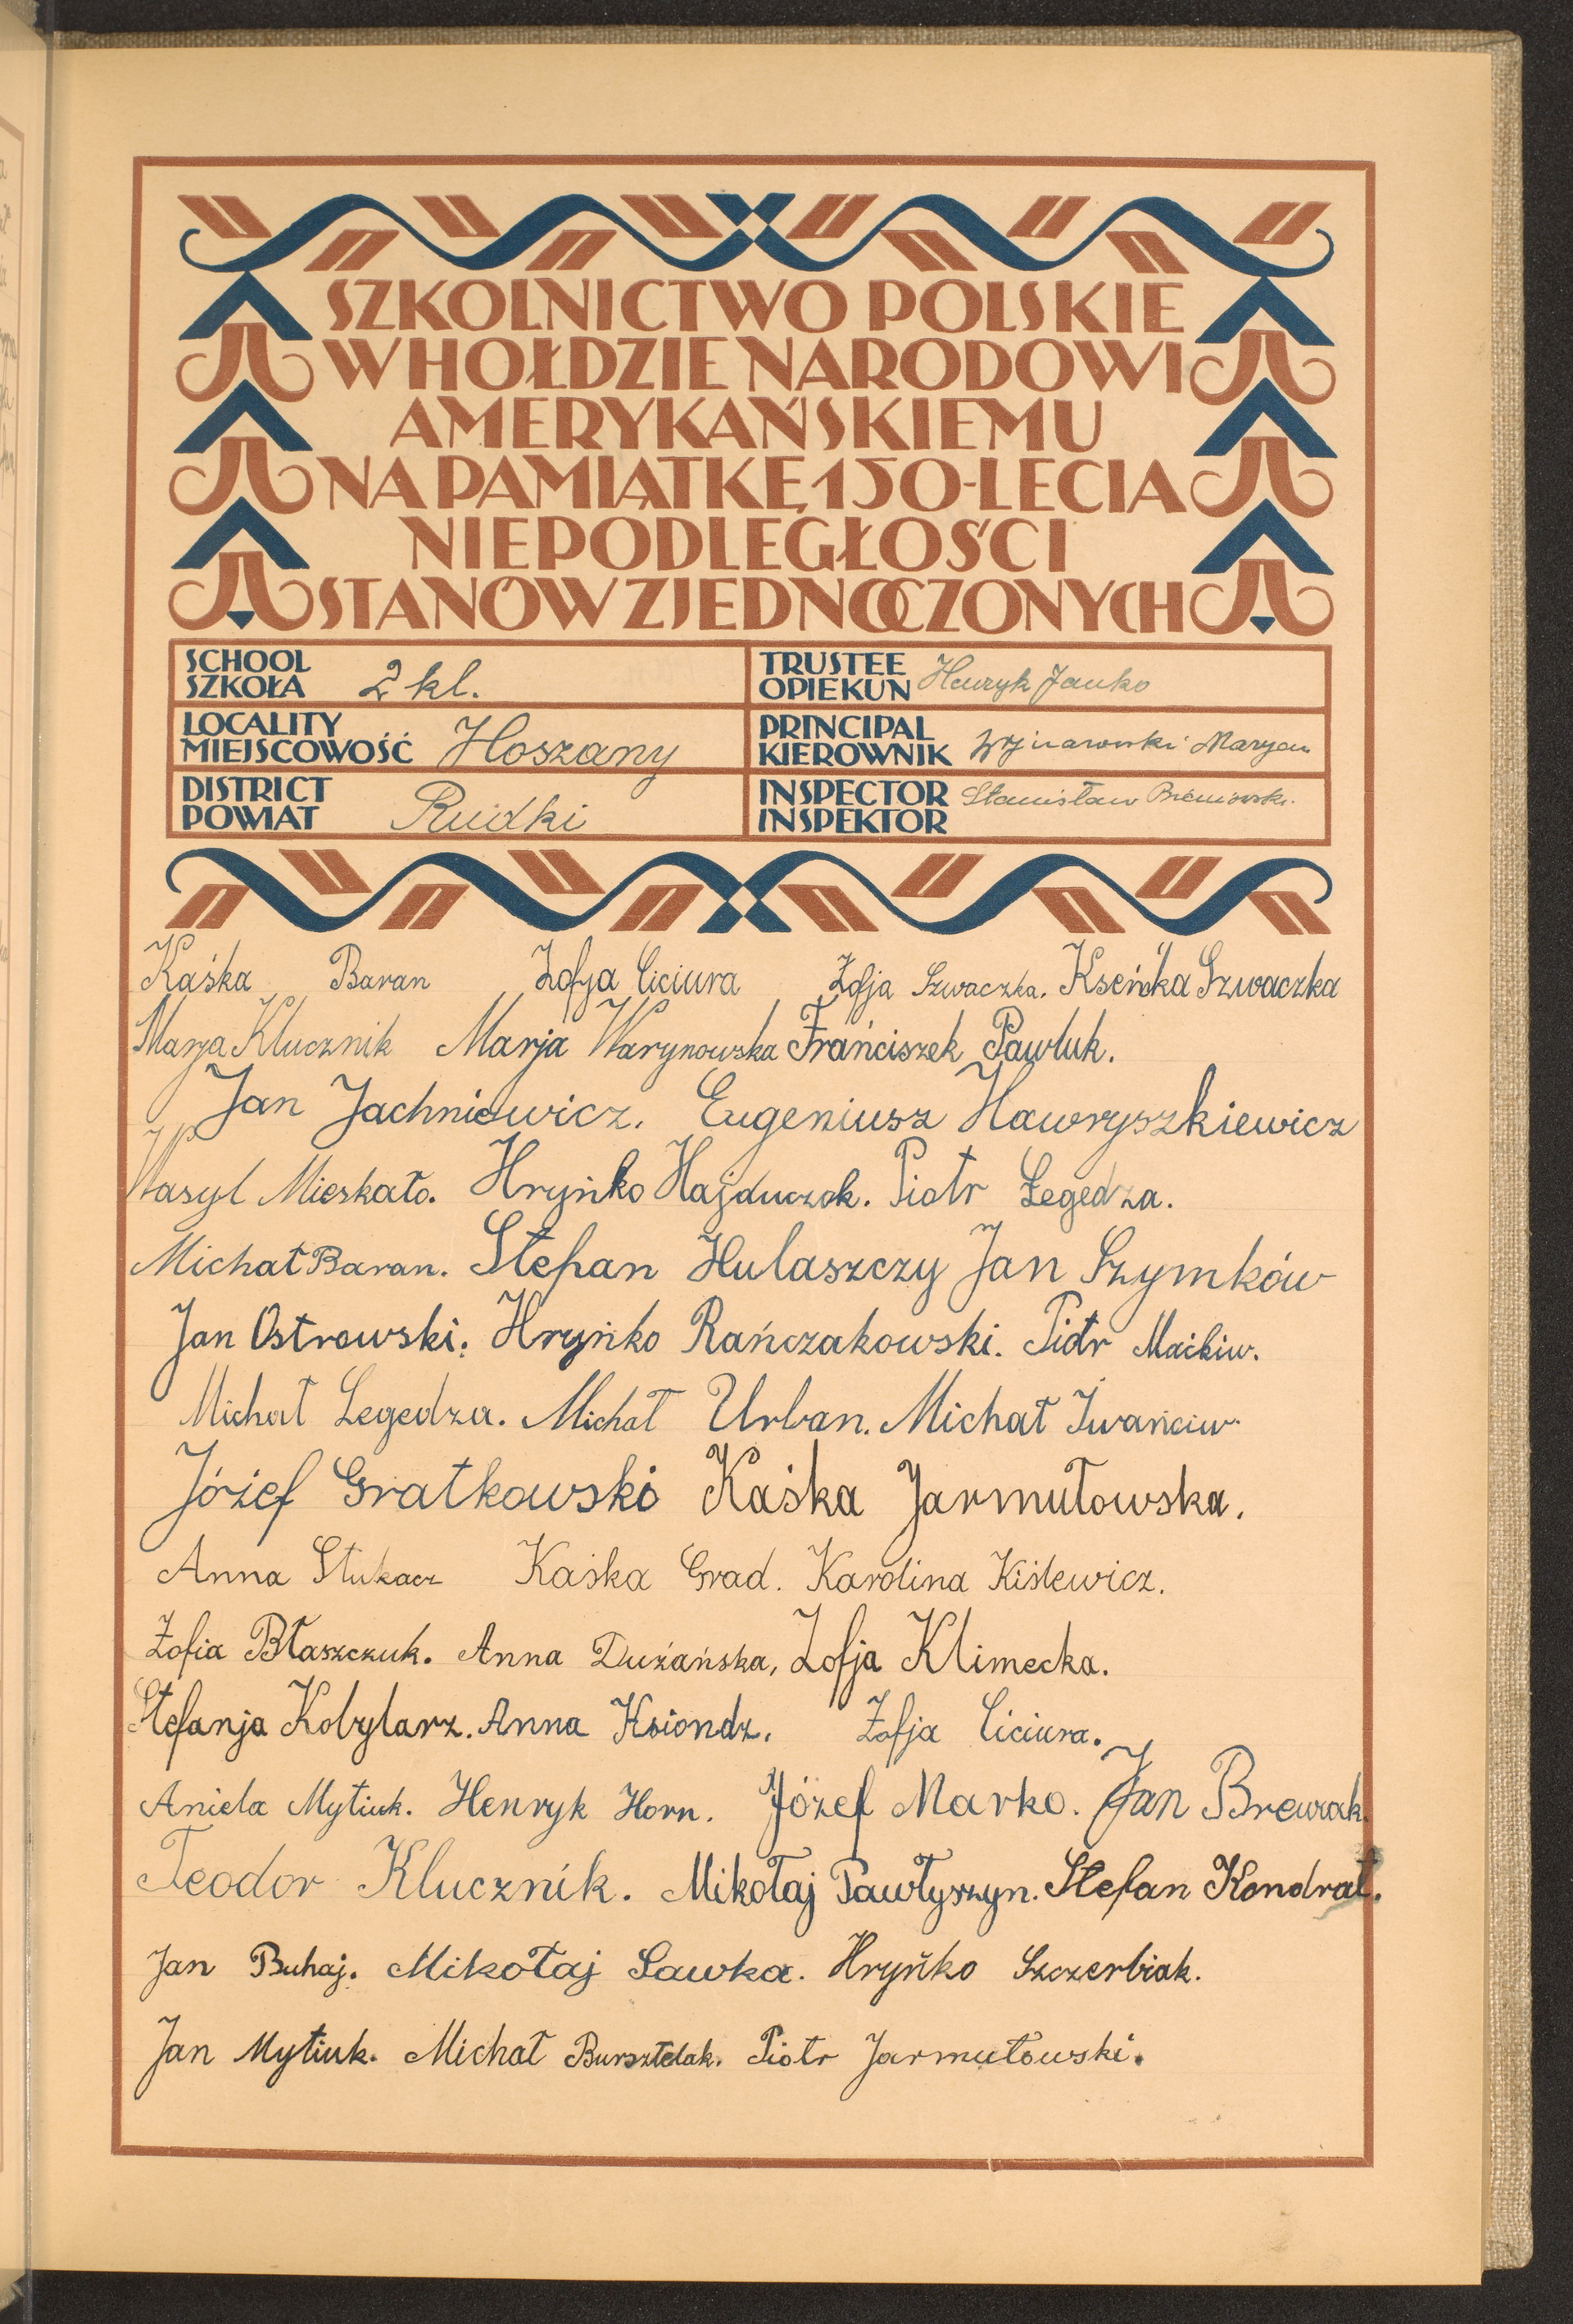 SZKOLNICTWO POLSKIE
W HOŁDZIE NARODOWI
AMERYKAŃSKIEMU
NA PAMIĄTKĘ 150-LECIA
NIEPODLEGŁOŚCI
STANÓW ZJEDNOCZONYCH
SCHOOL
SZKOŁA 2 kl.
TRUSTEE
OPIEKUN Henryk Janko
LOCALITY
MIEJSCOWOŚĆ Hoszany
PRINCIPAL
KIEROWNIK Maryan
DISTRICT
POWIAT Rudki
INSPECTOR Stanisław
INSPEKTOR
Kaśka Baran Zofja Ciciura Zofja Szwaczka. Kseńka Szwaczka
Marja Klucznik Marja Warynowska Frańciszek Pawluk.
Jan Jachniewicz. Eugeniusz Hawryszkiewicz
Wasyl Mieskało. Hryńko Hajduczok. Piotr Łegedza.
Michał Baran. Stefan Hulaszczy Jan Szymków
Jan Ostrowski. Hryńko Rańczakowski. Piotr Maćkiw.
Michał Legedza. Michał Urban. Michał Iwańciw.
Józef Gratkowski Kaśka Jarmułowska.
Anna Stukacz Kaśka Grad. Karolina Kiślewicz.
Zofia Błaszczuk. Anna Dużańska, Zofja Klimecka.
Stefanja Kobylarz. Anna Ksiondz. Zofja Ciciura.
Aniela Mytiuk. Henryk Horn. Józef Marko. Jan
Teodor Klucznik. Mikołaj Pawłyszyn. Stefan Kondrat.
Jan Buhaj. Mikołaj Sawka. Hryńko Szczerbiak.
Jan Mytiuk. Michał Bursztelak. Piotr Jarmułowski.